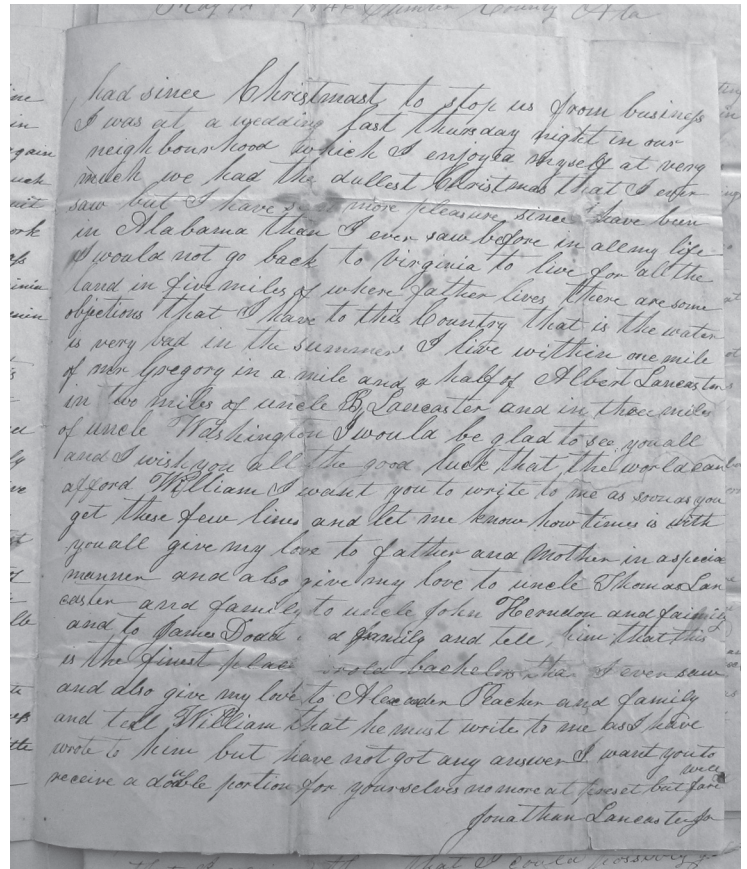 had since Christmast to stop us from business
I was at a wedding last thursday night in our
neighbourhood which I enjoyed myself at very
much we had the dullest Christmas that I ever
saw but I have more pleasure since I have been
in Alabama than I ever saw before in all my life
I would not go back to Virginia to live for all the
land in five miles of where father lives there are some
objections that I have to this Country that is the water
is very bad in the summer I live within one mile
of mr Gregory in a mile and a half of Albert Lancaster
in two miles of uncle Lancaster and in three miles
of uncle Washington I would be glad to see you all
and I wish you all the good luck that the world can
afford William I want you to write to me as soon as you
get these few lines and let me know how times is with
you all give my love to father and Mother in a specia
manner and also give my love to uncle Thomas Lan
caster and family to uncle John Herndon and family
and to James Dodd family and tell him that this
is the finest place old bachelors I ever saw
and also give my love to Alexander Peacher and family
and tell William that he must write to me as I have
wrote to him but have not got any answer I want you to
receive a double portion for yourselves no more at preset but fare
well
Jonathan Lancaster Jr